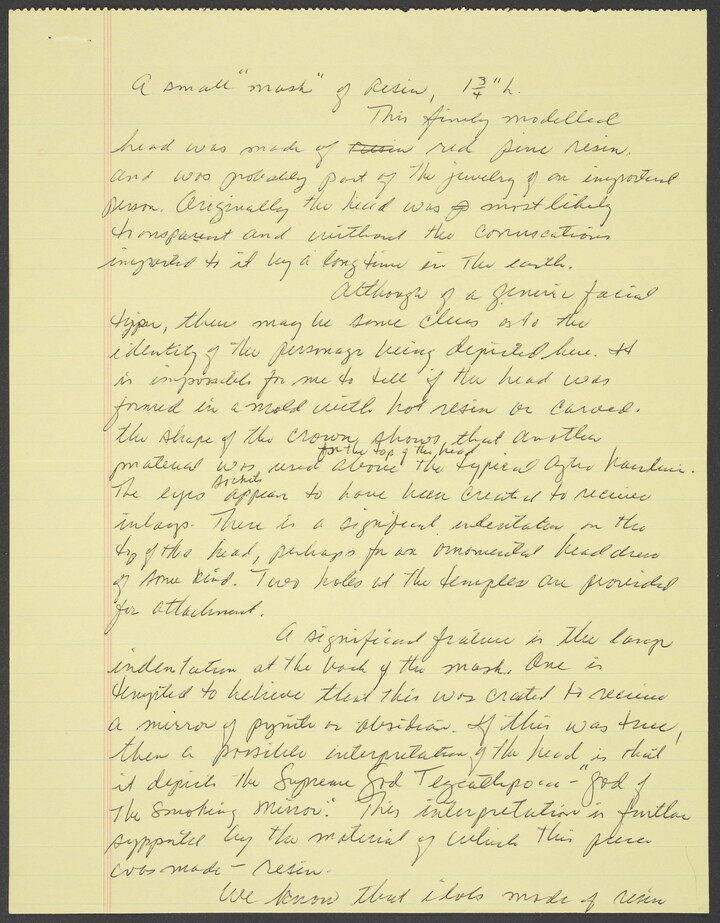 A small "mask" of Resin, 1 3/4" h.
This finely modelled
head was made of Resin red pine resin.
and was probably part of the jewelry of an important
person. Originally the head was most likely
transparent and without the corruscations
imparted to it by a long time in the earth.
Although of a generic facial
type, there may be some clues as to the
identity of the personage being depicted here. It
is impossible for me to tell if the head was
formed in a mold with hot resin or carved.
the shape of the crown shows that another
for the top of the head
material was used above the typical Aztec hairline.
The eyes sockets appear to have been created to receive
inlays. There is a significant indentation on the
top of the head, perhaps for an ornamental headdress
of some kind. Two holes at the temples are provided
for attachment.
A significant feature is the large
indentation at the back of the mask. One is
tempted to believe that this was created to receive
a mirror of pyrite or obsidian. If this was true,
then a possible interpretation of the head is that
it depicts the Supreme God Tezcatlipoca - "god of
the Smoking Mirror." This interpretation is further
supported by the material of which this piece
was made - resin.
We know that idols made of resin